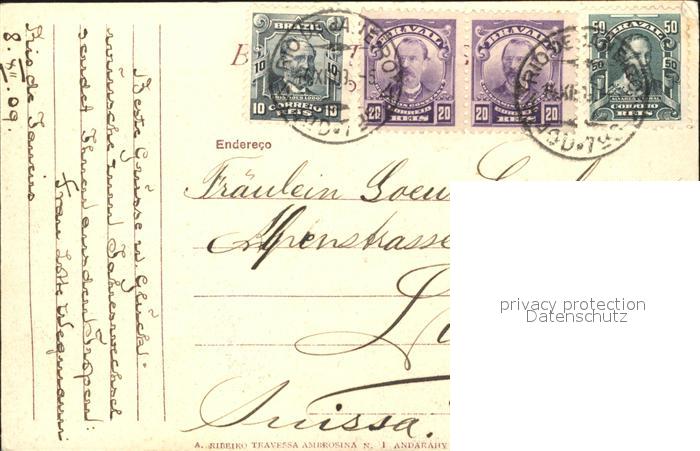 Rio de Janeiro
8. XII. 09.
Beste Grüsse u. Glück-
wünsche zum Jahreswechsel
sendet Ihnen aus den Tropen:
Frau Lotte Wegmann
BRAZIL
10 10
10 CORREIO 10
REIS
BRAZIL
20 CORREIO 20
REIS
BRAZIL
20 CORREIO 20
REIS
50 50
BRAZIL
50 50
CORREIO
REIS
Endereço
Fräulein
Alpenstrasse
Suissa.
privacy protection
Datenschutz
A. RIBEIRO TRAVESSA AMBROSINA N. 1 ANDARAHY